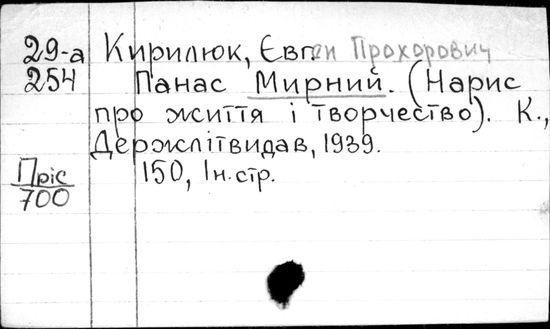 29-а Кирилюк, Євген Прохорович
254 Панас Мирний. (Нарис
про життя і творчество). К.,
Держлітвидав, 1939.
Пріс 150, Ін.стр.
700